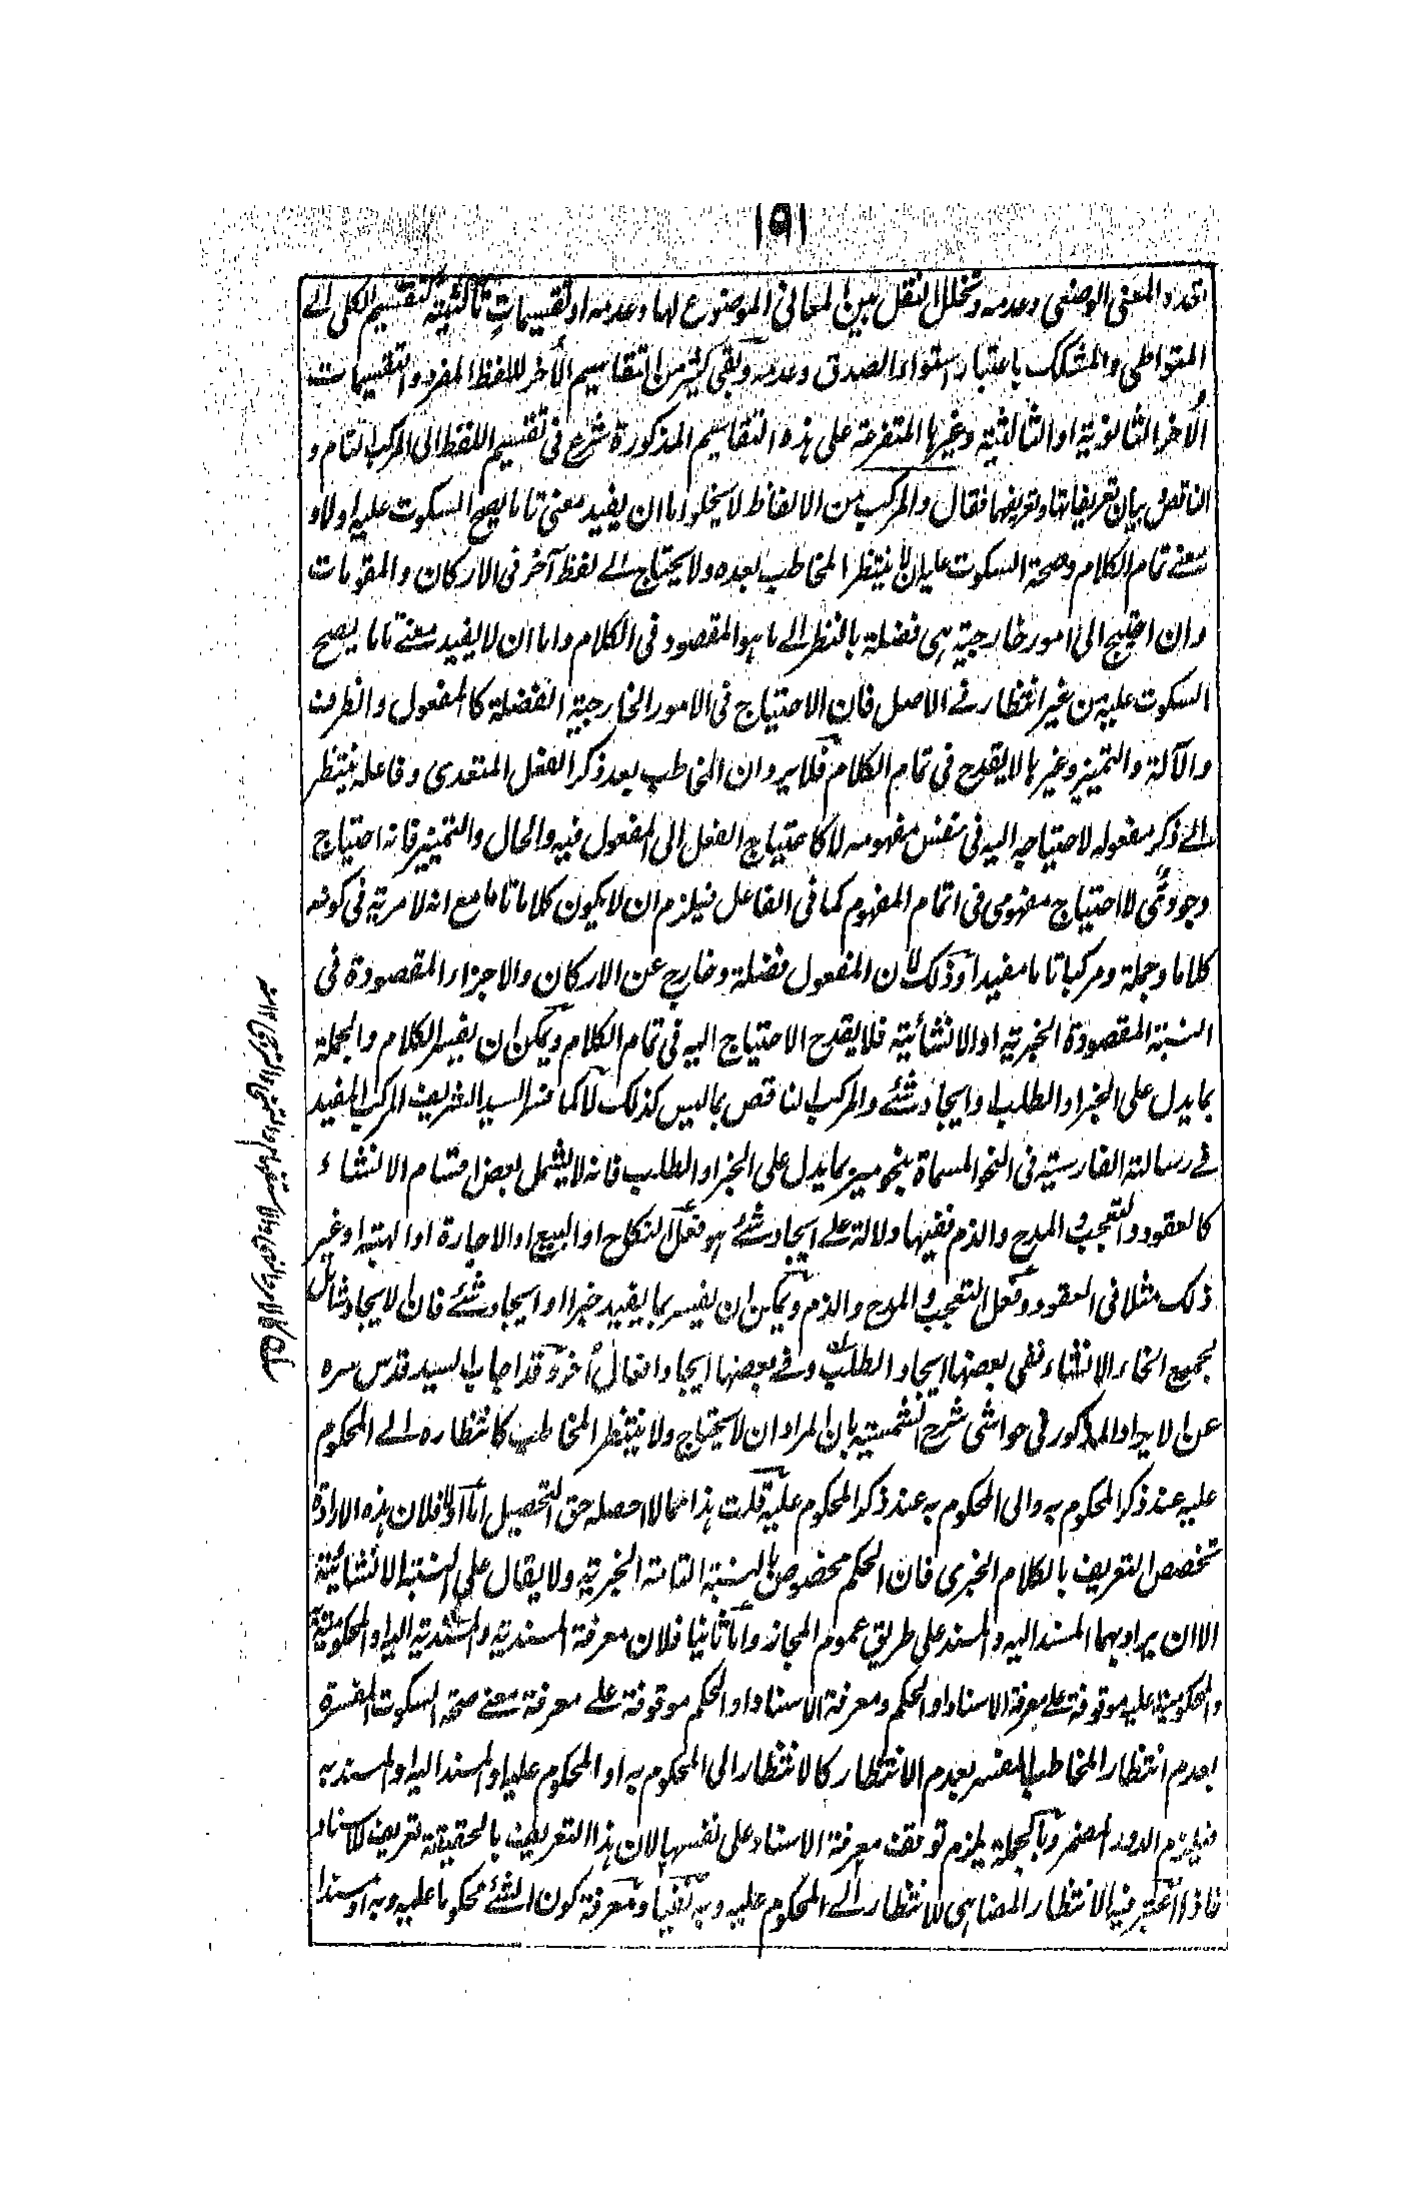 ١٥١
تعدد المعنى الوضعى وعدمه وتخلل النقل بين المعانى الموضوع لها وعدمه او تقسيمات ثالثية كتقسيم الكلى الى
المتواطى والمشكك باعتبار استواء الصدق وعدمه وبقى كثير من التقاسيم الأخر للفظ المفرد والتقسيمات
الأخر الثانوية او الثالثية وغيرها المتفرعة على هذه التقاسيم المذكورة شرع فى تقسيم اللفظ الى المركب التام و
الناقص وبيان تعريفاتها وتعريفها فقال والمركب من الالفاظ لا يخلو اما ان يفيد معنى تاما يصح السكوت عليه او لا و
معنى تمام الكلام وصحة السكوت عليه ان لا ينتظر المخاطب بعده ولا يحتاج الى لفظ آخر فى الاركان والمقومات
وان احتيج الى امور خارجية هى فضلة بالنظر الى ما هو المقصود فى الكلام واما ان لا يفيد معنى تاما يصح
السكوت عليه من غير انتظار فى الاصل فان الاحتياج فى الامور الخارجية الفضلة كالمفعول والظرف
والآلة والتمييز وغيرها لا يقدح فى تمام الكلام فلا يرد ان المخاطب بعد ذكر الفعل المتعدى وفاعله ينتظر
الى ذكر مفعوله لاحتياجه اليه فى نفس مفهومه لا كاحتياج الفعل الى المفعول فيه والحال والتمييز فانه احتياج
وجودى لا احتياج مفهومى فى اتمام المفهوم كما فى الفاعل فيلزم ان لا يكون كلاما تاما مع انه لا مرية فى كونه
كلاما وجملة ومركبا تاما مفيدا وذلك لان المفعول فضلة وخارج عن الاركان والاجزاء المقصودة فى
النسبة المقصودة الخبرية او الانشائية فلا يقدح الاحتياج اليه فى تمام الكلام ويمكن ان يفسر الكلام والجملة
بما يدل على الخبر او الطلب او ايجاد شئ والمركب الناقص بما ليس كذلك لا كما فسر السيد الشريف المركب المفيد
فى رسالته الفارسية فى النحو المسماة بنحو مير بما يدل على الخبر او الطلب فانه لا يشمل بعض اقسام الانشاء
كالعقود والتعجب والمدح والذم ففيها دلالة على ايجاد شئ هو فعل النكاح او البيع او الاجارة او الهبة او غير
ذلك مثلا فى العقود وفعل التعجب والمدح والذم ويمكن ان يفسر بما يفيد خبرا او ايجاد شئ فان الايجاد شامل
لجميع انحاء الانشاء ففى بعضها ايجاد الطلب وفى بعضها ايجاد افعال أخر وقد اجاب السيد قدس سره
عن الايراد المذكور فى حواشى شرح الشمسية بان المراد ان لا يحتاج ولا ينتظر المخاطب كانتظاره الى المحكوم
عليه عند ذكر المحكوم به والى المحكوم به عند ذكر المحكوم عليه قلت هذا مما لا احصله حق التحصيل اما اولا فلان هذه الارادة
تخصص التعريف بالكلام الخبرى فان الحكم مخصوص بالنسبة التامة الخبرية ولا يقال على النسبة الانشائية
الا ان يراد بهما المسند اليه والمسند على طريق عموم المجاز واما ثانيا فلان معرفة المسندية والمسندية اليه او المحكومية به
والمحكومية عليه موقوفة على معرفة الاسناد او الحكم ومعرفة الاسناد او الحكم موقوفة على معرفة معنى صحة السكوت المفسرة
بعدم انتظار المخاطب المفسر بعدم الانتظار كالانتظار الى المحكوم به او المحكوم عليه او المسند اليه او المسند به
فيلزم الدور المضمر وبالجملة يلزم توقف معرفة الاسناد على نفسها لان هذا التعريف بالحقيقة تعريف للاسناد
فاذا اعتبر فيه الانتظار المضاهى للانتظار الى المحكوم عليه وبه نفيا ومعرفة كون الشئ محكوما عليه وبه او مسندا